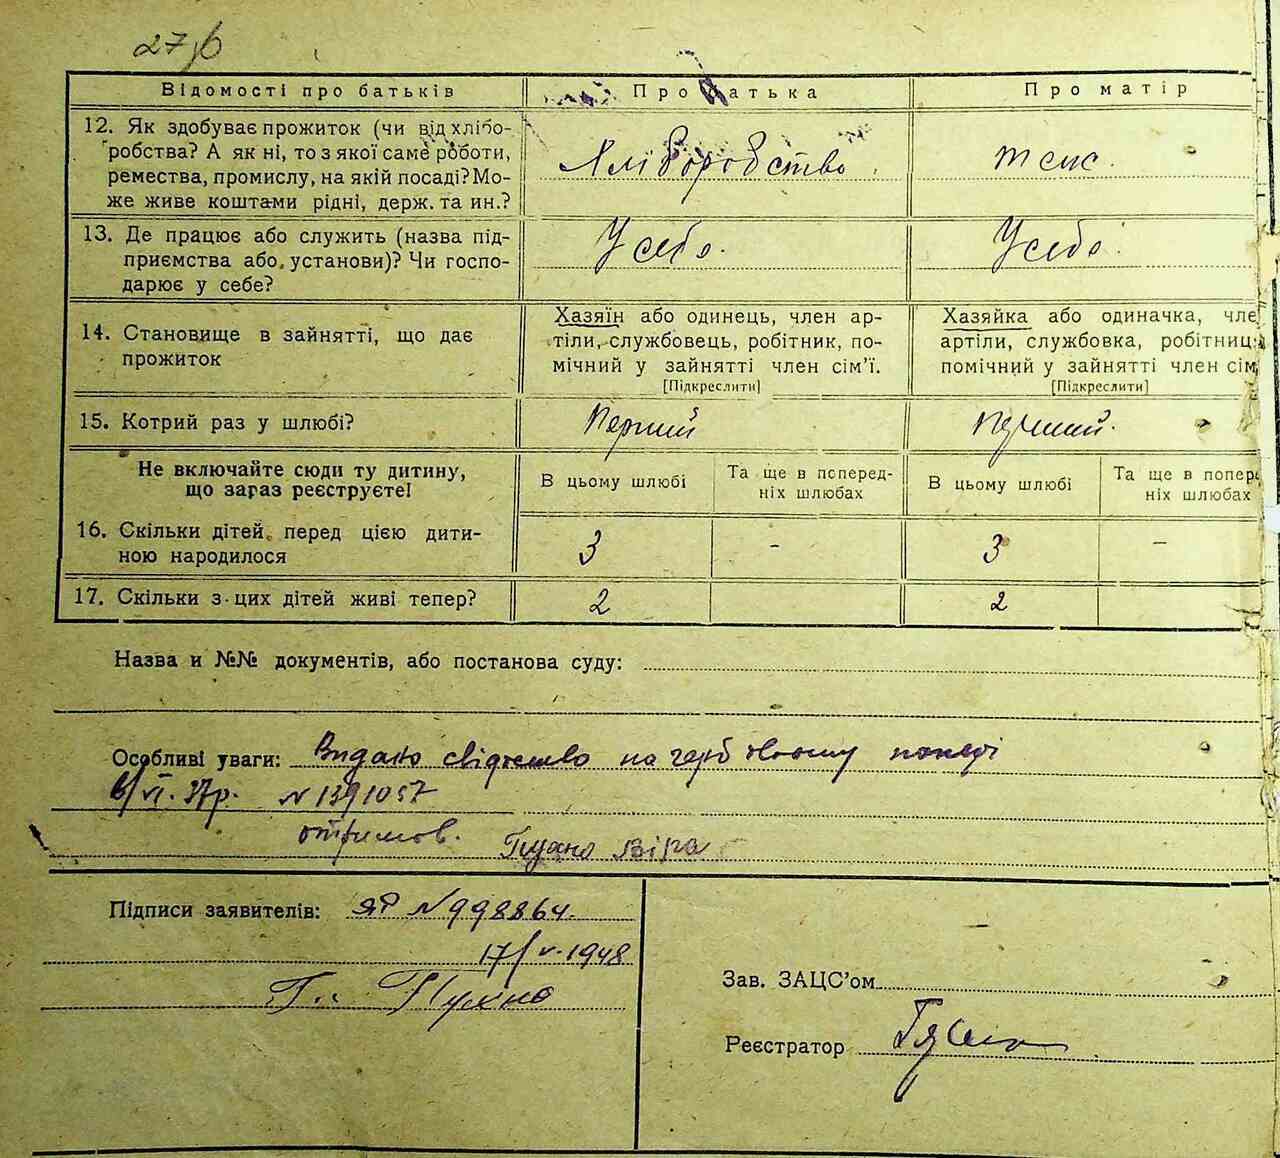 Відомості про батьків Про батька Про матір
12. Як здобуває прожиток (чи від хлібо-
робства? А як ні, то з якої саме роботи,
ремества, промислу, на якій посаді? Мо-
же живе коштами рідні, держ. та ин.?
Хліборобство теж
13. Де працює або служить (назва під-
приємства або установи)? Чи госпо-
дарює у себе?
У себе. У себе
14. Становище в зайнятті, що дає
прожиток
Хазяїн або одинець, член ар-
тіли, службовець, робітник, по-
мічний у зайнятті член сім'ї.
[Підкреслити]
Хазяйка або одиначка, чле
артіли, службовка, робітниц
помічний у зайнятті член сім
[Підкреслити]
15. Котрий раз у шлюбі? Перший Перший.
Не включайте сюди ту дитину,
що зараз реєструєте!
В цьому шлюбі
Та ще в поперед-
ніх шлюбах
В цьому шлюбі
Та ще в попере
ніх шлюбах
16. Скільки дітей перед цією дити-
ною народилося
3 - 3 -
17. Скільки з цих дітей живі тепер? 2 2
Назва и №№ документів, або постанова суду:
Особливі уваги: Видано свідоцтво на гербовому папері
6/VI. 37р. N 1391057
отримов. Віра
Підписи заявителів: ЯР N 998864.
17/V-1948
Г. Пухно
Зав. ЗАЦС'ом
Реєстратор